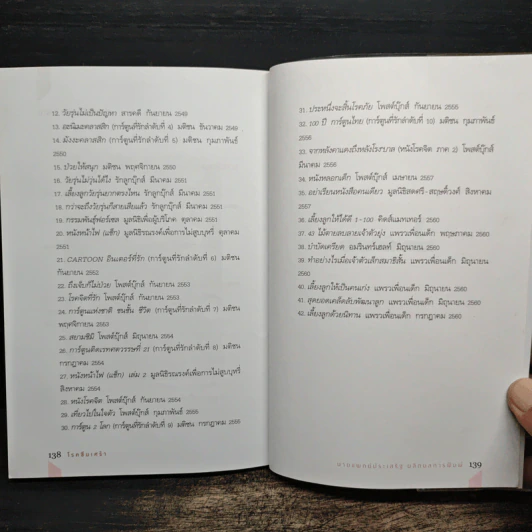 12. วัยรุ่นไม่เป็นปัญหา สารคดี กันยายน 2549
13. อะนิเมะคลาสสิก (การ์ตูนที่รักลำดับที่ 4) มติชน ธันวาคม 2549
14. มังงะคลาสสิก (การ์ตูนที่รักลำดับที่ 5) มติชน กุมภาพันธ์
2550
15. ป่วยให้สนุก มติชน พฤศจิกายน 2550
16. วัยรุ่นไม่วุ่นได้ไง รักลูกบุ๊กส์ มีนาคม 2551
17. เลี้ยงลูกวัยรุ่นยากตรงไหน รักลูกบุ๊กส์ มีนาคม 2551
18. กว่าจะถึงวัยรุ่นก็สายเสียแล้ว รักลูกบุ๊กส์ มีนาคม 2551
19. กรรมพันธุ์ฟอร์เซล มูลนิธิเพื่อผู้บริโภค ตุลาคม 2551
20. หนังหน้าไฟ (แช็ก) มูลนิธิรณรงค์เพื่อการไม่สูบบุหรี่ ตุลาคม
2551
21. CARTOON อินเตอร์ที่รัก (การ์ตูนที่รักลำดับที่ 6) มติชน
กันยายน 2552
22. ถึงเจ็บก็ไม่ป่วย โพสต์บุ๊กส์ กันยายน 2553
23. โรคจิตที่รัก โพสต์บุ๊กส์ กันยายน 2553
24. การ์ตูนแห่งชาติ ชนชั้น ชีวิต (การ์ตูนที่รักลำดับที่ 7) มติชน
พฤศจิกายน 2553
25. สยามซิมี โพสต์บุ๊กส์ มิถุนายน 2554
26. การ์ตูนคิดเรทศตวรรษที่ 21 (การ์ตูนที่รักลำดับที่ 8) มติชน
กรกฎาคม 2554
27. หนังหน้าไฟ (แช็ก) เล่ม 2 มูลนิธิรณรงค์เพื่อการไม่สูบบุหรี่
สิงหาคม 2554
28. หนังโรคจิต โพสต์บุ๊กส์ กันยายน 2554
29. เที่ยวไปในใจตัว โพสต์บุ๊กส์ กุมภาพันธ์ 2555
30. การ์ตูน 2 โลก (การ์ตูนที่รักลำดับที่ 9) มติชน กรกฎาคม 2555
138 โรคซึมเศร้า
31. ประหนึ่งจะสิ้นโรคภัย โพสต์บุ๊กส์ กันยายน 2555
32. 100 ปี การ์ตูนไทย (การ์ตูนที่รักลำดับที่ 10) มติชน กุมภาพันธ์
2556
33. จากหลังคาแดงถึงหลังโรงบาล (หนังโรคจิต ภาค 2) โพสต์บุ๊กส์
มีนาคม 2556
34. หนังหลอกเด็ก โพสต์บุ๊กส์ เมษายน 2557
35. อย่าเรียนหนังสือคนเดียว มูลนิธิสดศรี-สฤษดิ์วงศ์ สิงหาคม
2557
36. เลี้ยงลูกให้ได้ดี 1-100 คิดส์เมพเทอร์ 2560
37. 43 ไม้ตายสลายเจ้าตัวยุ่ง แพรวเพื่อนเด็ก พฤษภาคม 2560
38. บำบัดเครียด อมรินทร์เฮลท์ มิถุนายน 2560
39. ทำอย่างไรเมื่อเจ้าตัวเล็กสมาธิสั้น แพรวเพื่อนเด็ก มิถุนายน
2560
40. เลี้ยงลูกให้เป็นคนเก่ง แพรวเพื่อนเด็ก มิถุนายน 2560
41. สุดยอดเคล็ดลับพัฒนาลูก แพรวเพื่อนเด็ก มิถุนายน 2560
42. เลี้ยงลูกด้วยนิทาน แพรวเพื่อนเด็ก กรกฎาคม 2560
นายแพทย์ประเสริฐ ผลิตผลการพิมพ์ 139